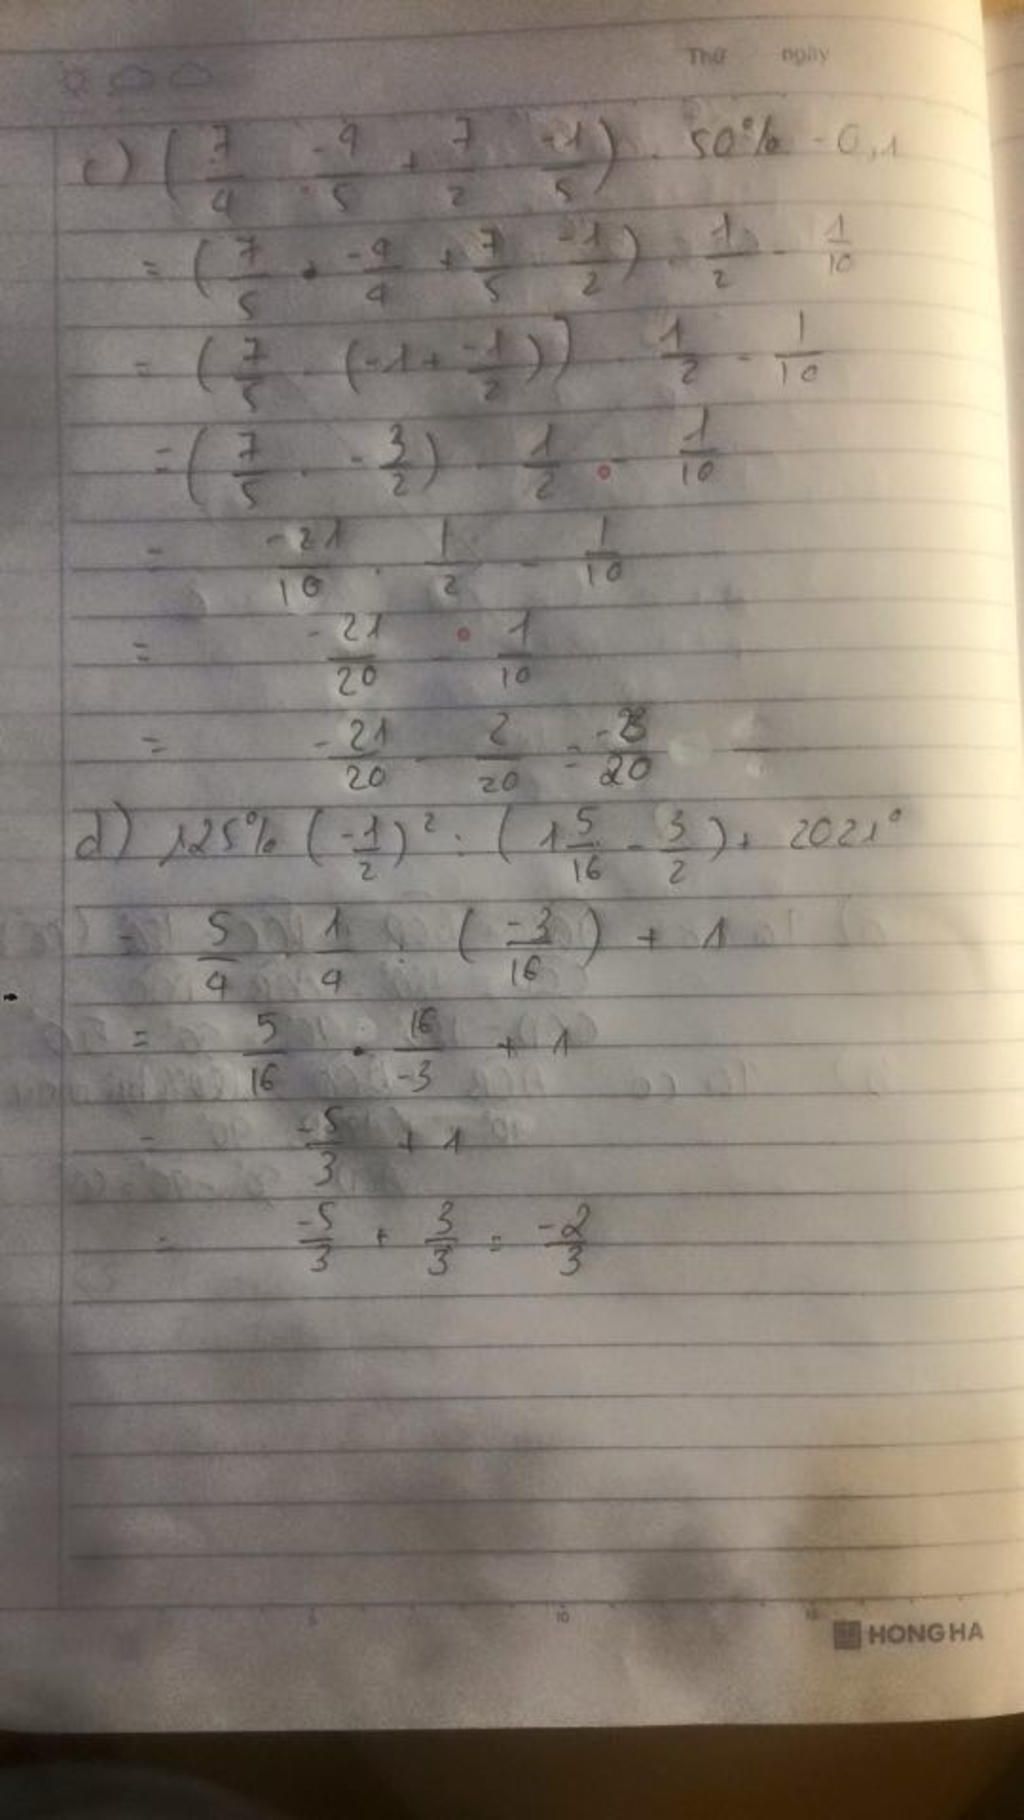 Thứ ngày
c) (7/4 · -4/5 + 7/2 · -1/5) · 50% - 0,1
= (7/5 · -4/4 + 7/5 · -1/2) · 1/2 - 1/10
= (7/5 · (-1 + -1/2)] · 1/2 - 1/10
= (7/5 · -3/2) · 1/2 - 1/10
= -21/10 · 1/2 - 1/10
= -21/20 - 1/10
= -21/20 - 2/20 =
d) 125% (-1/2)² : (1 5/16 - 3/2) + 2021⁰
= 5/4 · 1/4 : (-3/16) + 1
= 5/16 · 16/-3 + 1
= -5/3 + 1
= -5/3 + 3/3 = -2/3
5 10
HONG HA